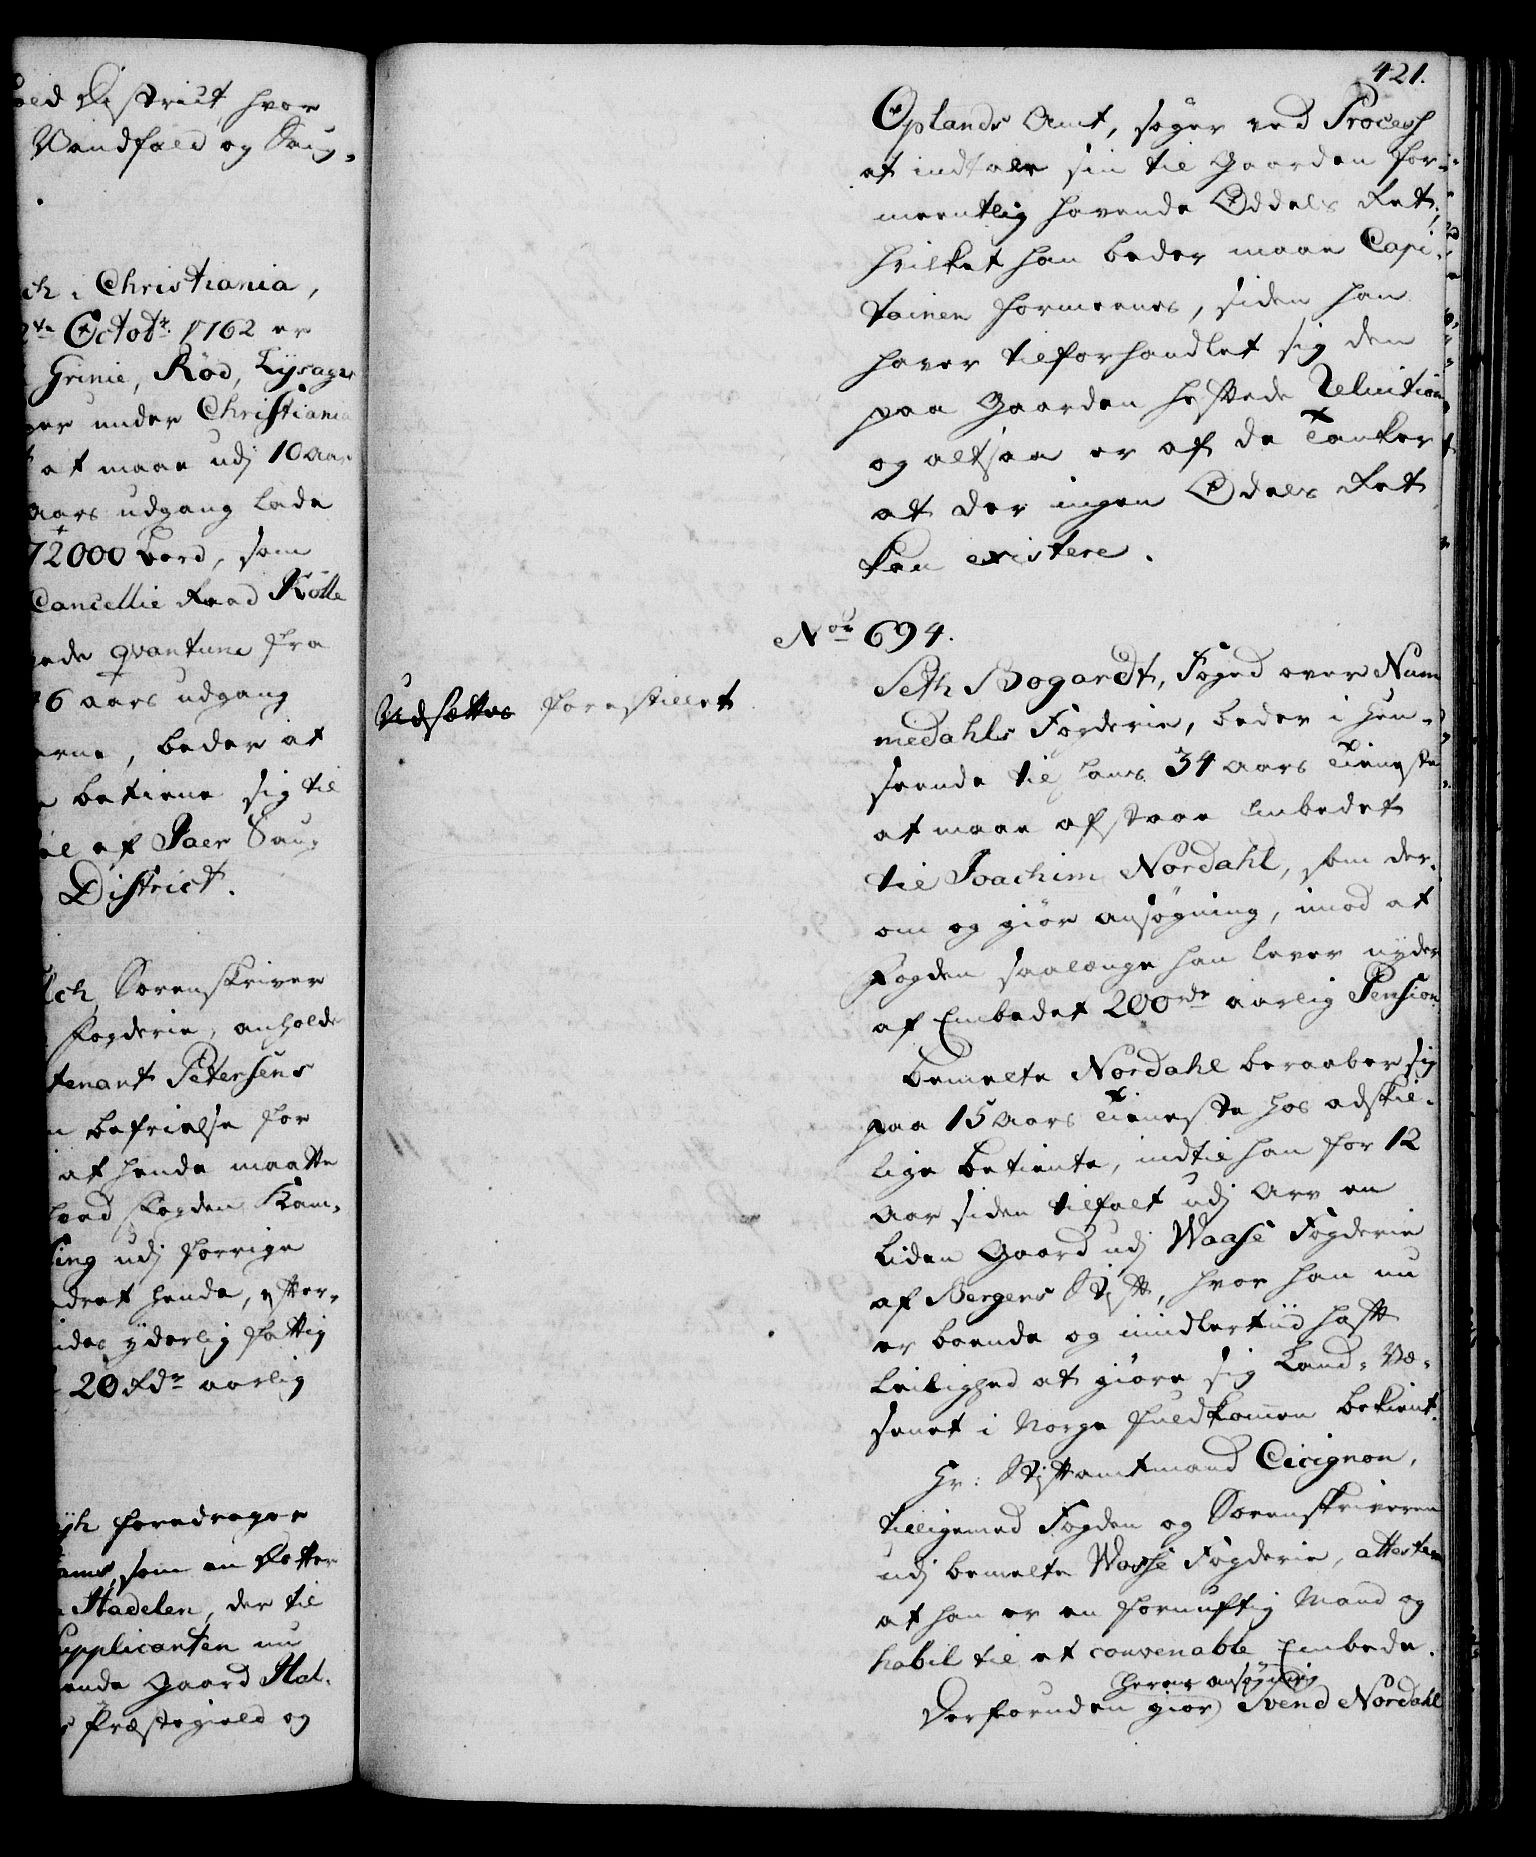 old District, hvor
Vandfald og Saug-
ch i Christiania,
2de Octobr. 1762 er
Grinie, Röd, Lysager
ger under Christiania
at maae udj 10 aar
aars udgang lade
72000 bord, som
Cancellie Raad Kölle
gede qvantum fra
6 aars udgang
erne, beder at
betiene sig til
el af Jaer Saug
District.
lch, Sorenskriver
Fogderie, anholde
tenant Petersens
n befrielse for
at hende maatte
Foged Kam-
ling udj forrige
dret hende, efter-
ides yderlig fattig
20 Rdr aarlig
foredrager
som en Datter
Stadelen, der til
Supplicanten nu
ende Gaard Hal-
Præstegield og
421.
Oplands Amt, søger ved Process
at indtale sin til Gaarden for-
meentlig havende Oddels Ret,
hvilket han beder maae Capi-
tainen formeenes, siden han
haver tilforhandlet sig den
paa Gaarden heftede Reluition
og altsaa er af de Tanker
at der ingen Odels Ret
kan existere.
Nor 694.
Udsættes forestillet
Seth Bogardt, Foged over Num-
medahls Fogderie, beder i Hen-
seende til hans 34 aars Tieneste
at maae afstaae Embedet
til Joachim Nordahl, som der-
om og giör ansøgning, imod at
Fogden saalænge han lever nyder
af Embedet 200 rdr aarlig Pension.
Bemelte Nordahl beraaber sig
paa 15 Aars Tieneste hos adskil-
lige betiente, indtil han for 12
Aar siden tilfalt udj Arv en
liden Gaard udj Waase Fogderie
af Bergens Stift, hvor han nu
er boende og imidlertiid haft
Leilighed at giöre sig Land-Væ-
senet i Norge fuldkommen bekient.
Hr: Stiftamtmand Cicignon,
tilligemed Fogden og Sorenskriveren
udj bemelte Wosse Fogderie, attesterer
at han er en fornuftig Mand og
habil til et convenable Embede.
herom ansøgning
Desforuden giör Svend Nordahl